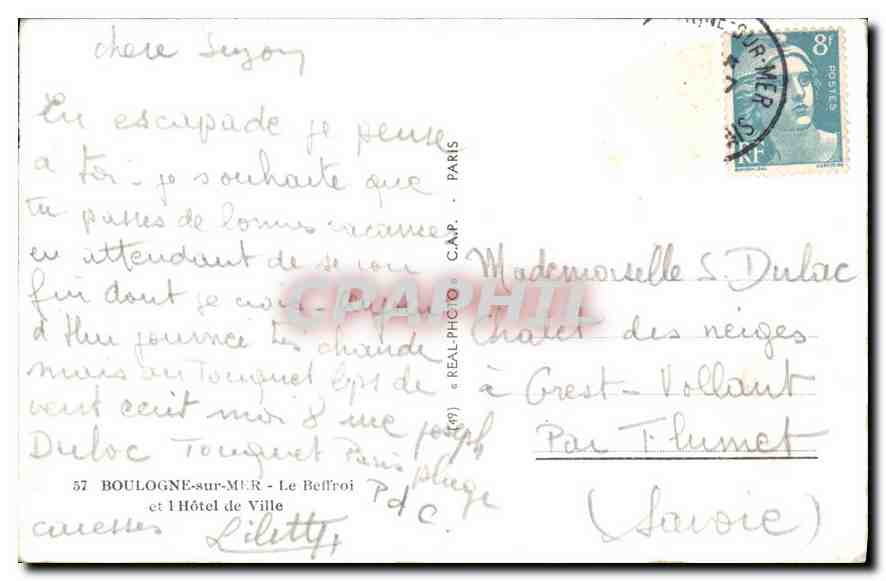 chere Suzon
En escapade je pense
a toi. je souhaite que
tu passes de bonnes vacances
en attendant de se
dont je
d'Hui journée très chaude
mais au Touquet de
vent ecrit moi 8 rue joseph
Duloc Touquet Paris plage
P d C.
caresses Lilette
57 BOULOGNE-sur-MER - Le Beffroi
et l Hôtel de Ville
(49) « REAL-PHOTO » C.A.P. - PARIS
CPAPHIL
SUR-MER
8f
POSTES
RF
Mademoiselle S. Dulac
Chalet des neiges
à Crest-Vollant
Par Flumet
(Savoie)